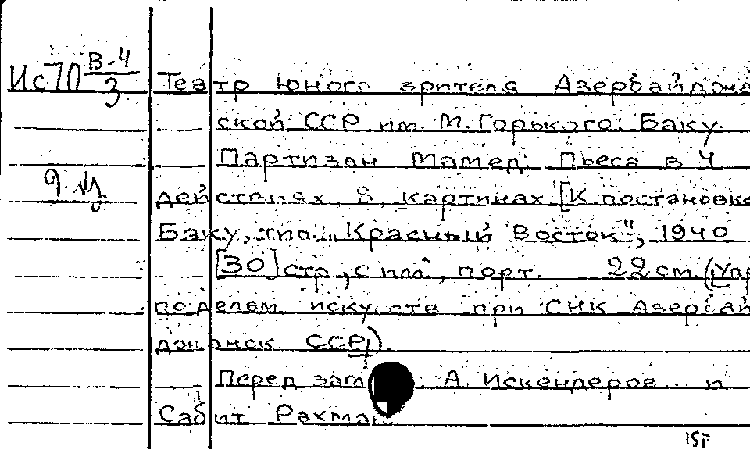 Ис70 В-4/3 Театр юного зрителя Азербайджан
ской ССР им. М. Горького. Баку.
Партизан Мамед. Пьеса в 4
действиях, 8 картинах [К постановке
Баку, тип. „Красный Восток", 1940
[30] стр., с илл., порт. 22 см. (Упр
по делам искусств при СНК Азербай
джанск ССР).
Перед загл. А. Искендеров и
Сабит Рахман